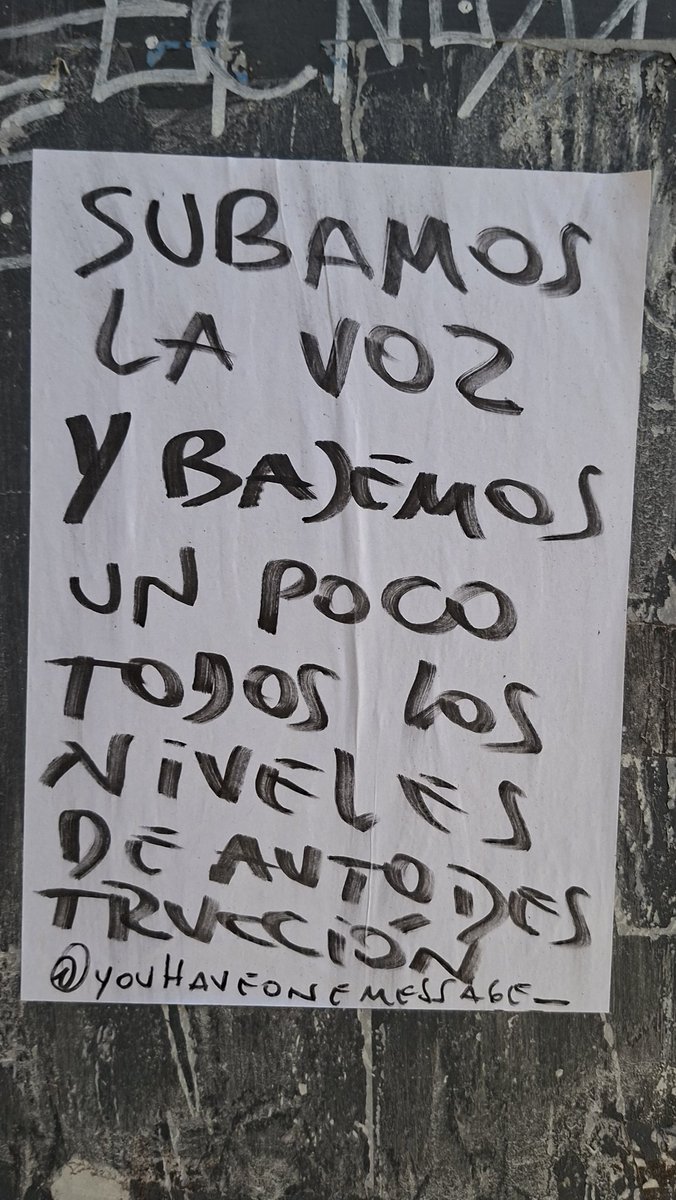 SUBAMOS
LA VOZ
Y BAJEMOS
UN POCO
TODOS LOS
NIVELES
DE AUTODES
TRUCCIÓN
@YOUHAVEONEMESSAGE_